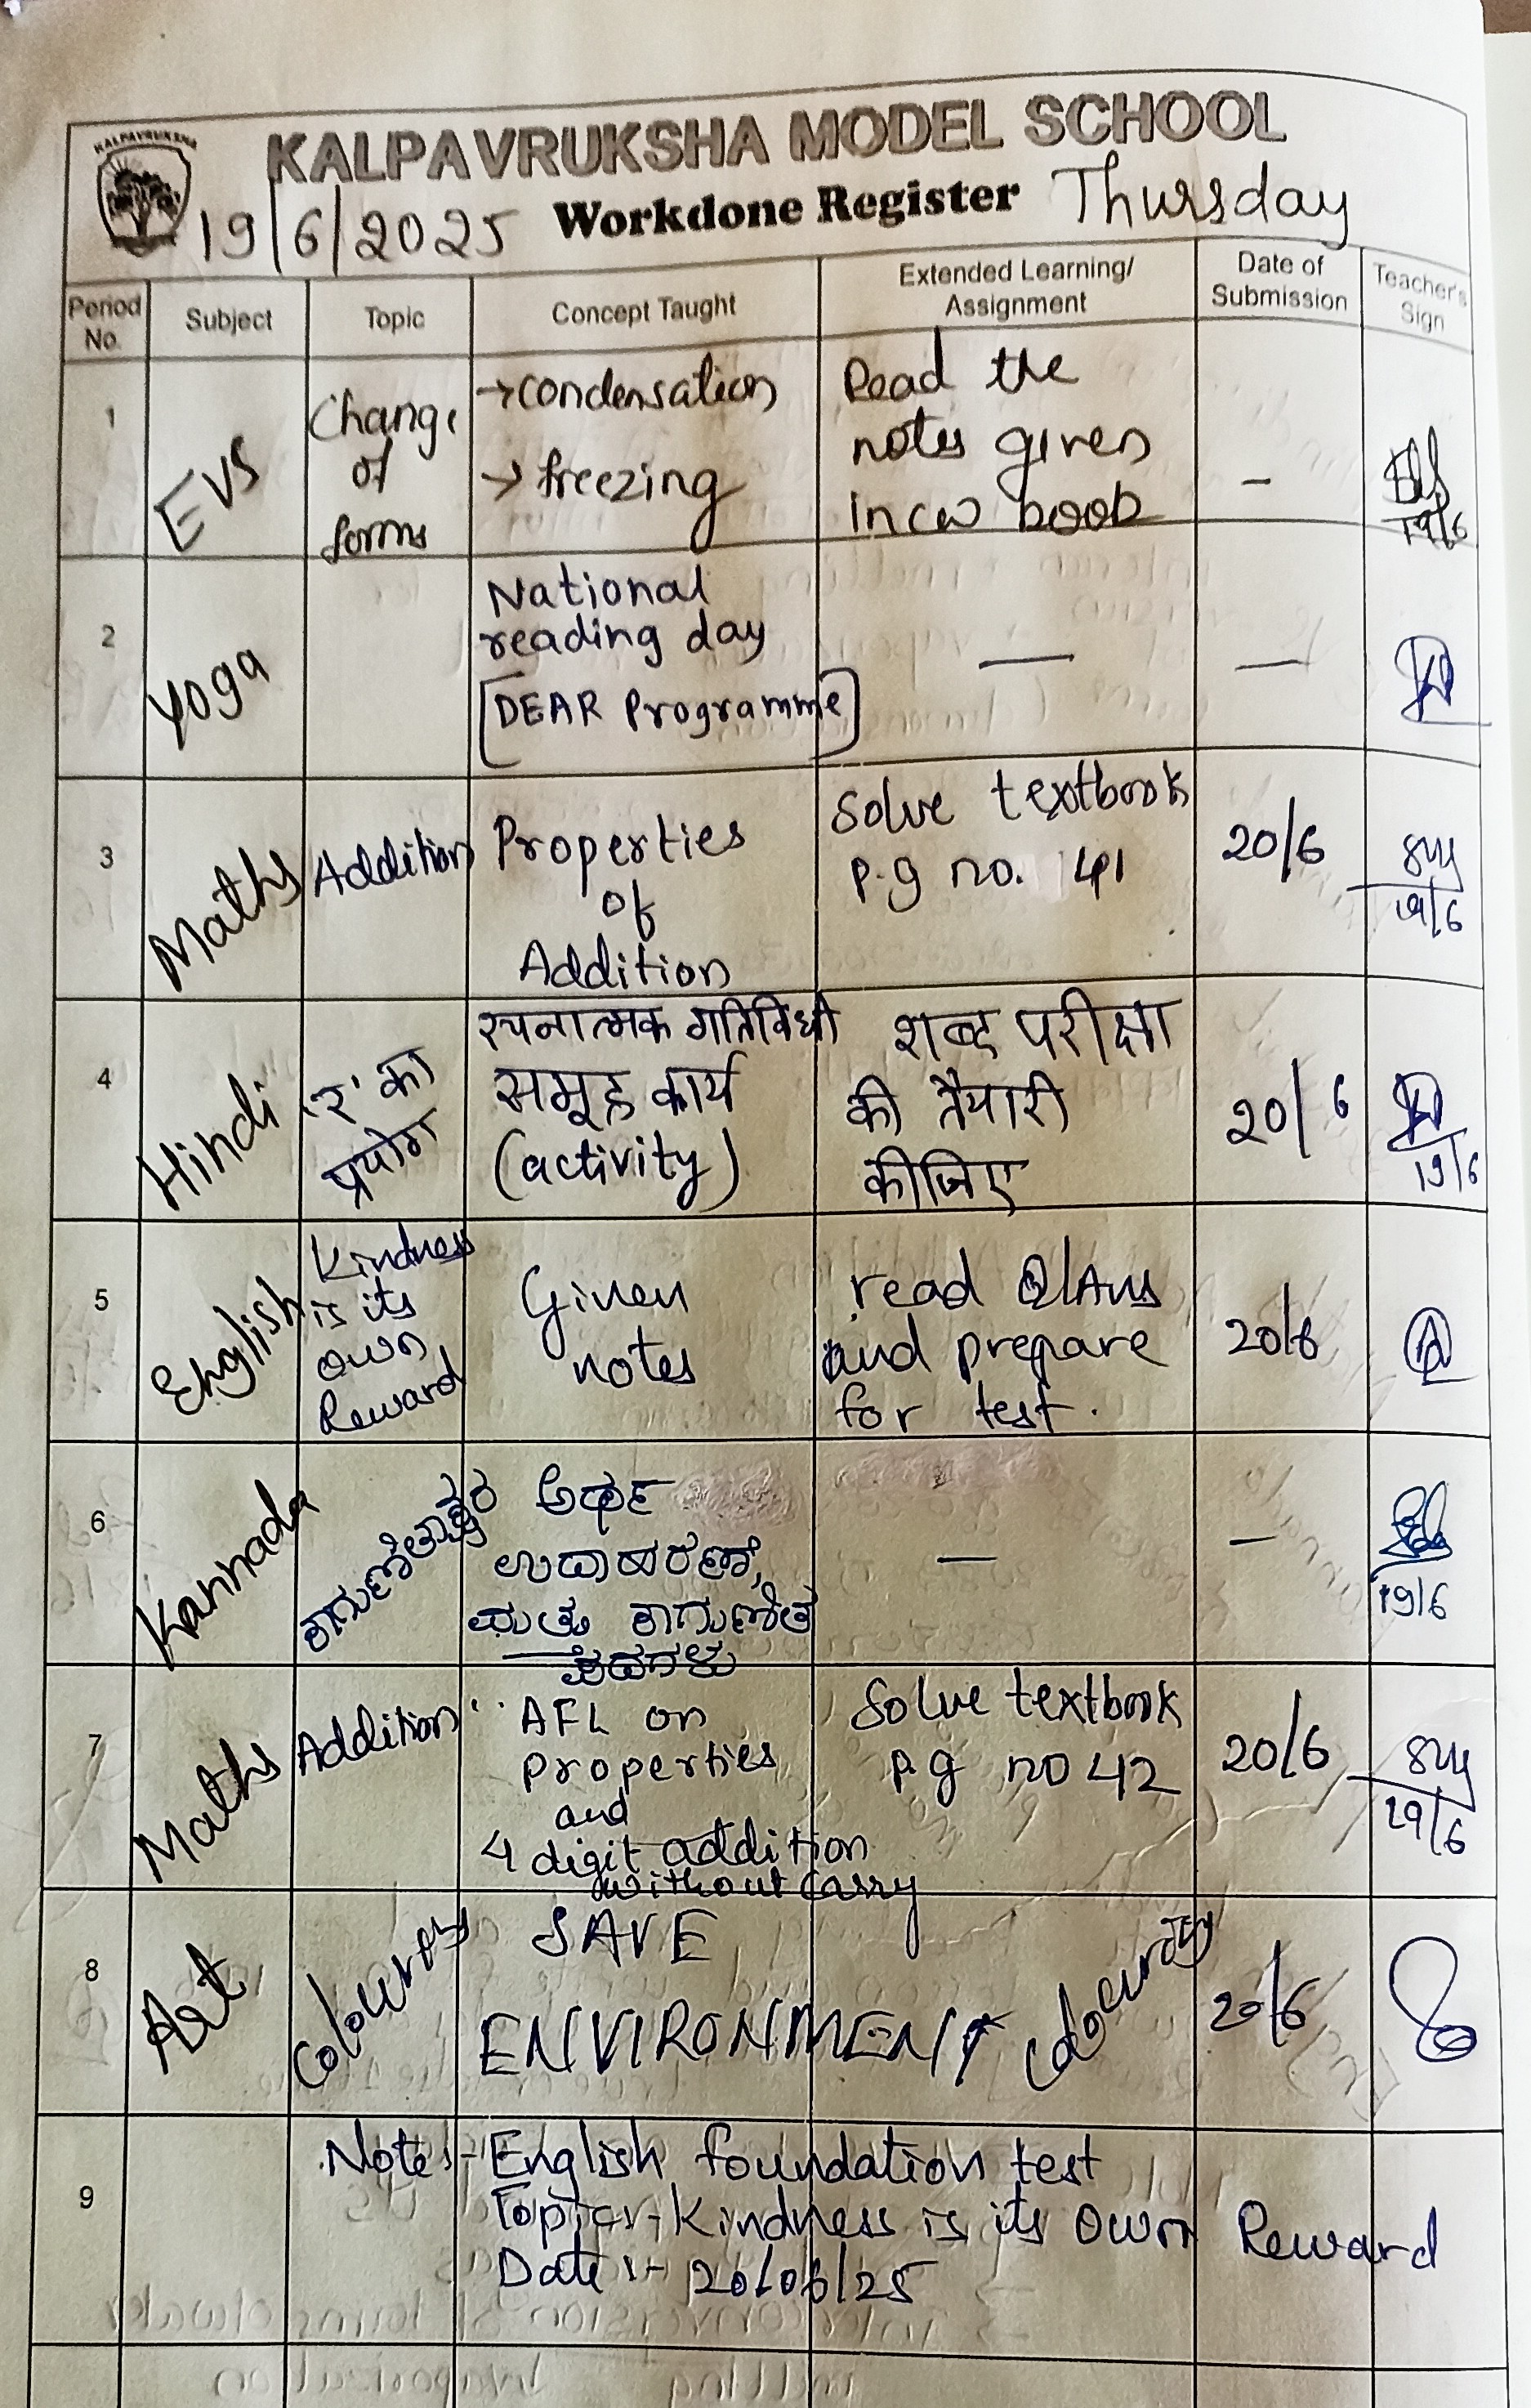 KALPAVRUKSHA
KALPAVRUKSHA MODEL SCHOOL
19/6/2025 Workdone Register Thursday
Period No. Subject Topic Concept Taught Extended Learning/ Assignment Date of Submission Teacher's Sign
1 EVS
Change
of
forms
→ condensation
→ freezing
Read the
notes given
in cw book
-
19/6
2 Yoga
National
reading day
[DEAR Programme]
—
—
3 Maths Addition
Properties
of
Addition
Solve textbook
p.g no. 41
20/6
19/6
4 Hindi
'र' का
प्रयोग
रचनात्मक गतिविधी
समूह कार्य
(activity)
शब्द परीक्षा
की तैयारी
कीजिए
20/6
19/6
5 English
Kindness
is its
own
Reward
Given
notes
read Q/Ans
and prepare
for test.
20/6
6 Kannada
ಅರ್ಥ
ಉದಾಹರಣೆ,
ಮತ್ತು ಕಾಗುಣಿತ
ಪದಗಳು
—
-
19/6
7 Maths Addition
AFL on
properties
and
4 digit addition
without carry
Solve textbook
p.g no 42
20/6
19/6
8 Art
SAVE
ENVIRONMENT
20/6
9
Note :- English foundation test
Topic :- Kindness is its own Reward
Date :- 20/06/25